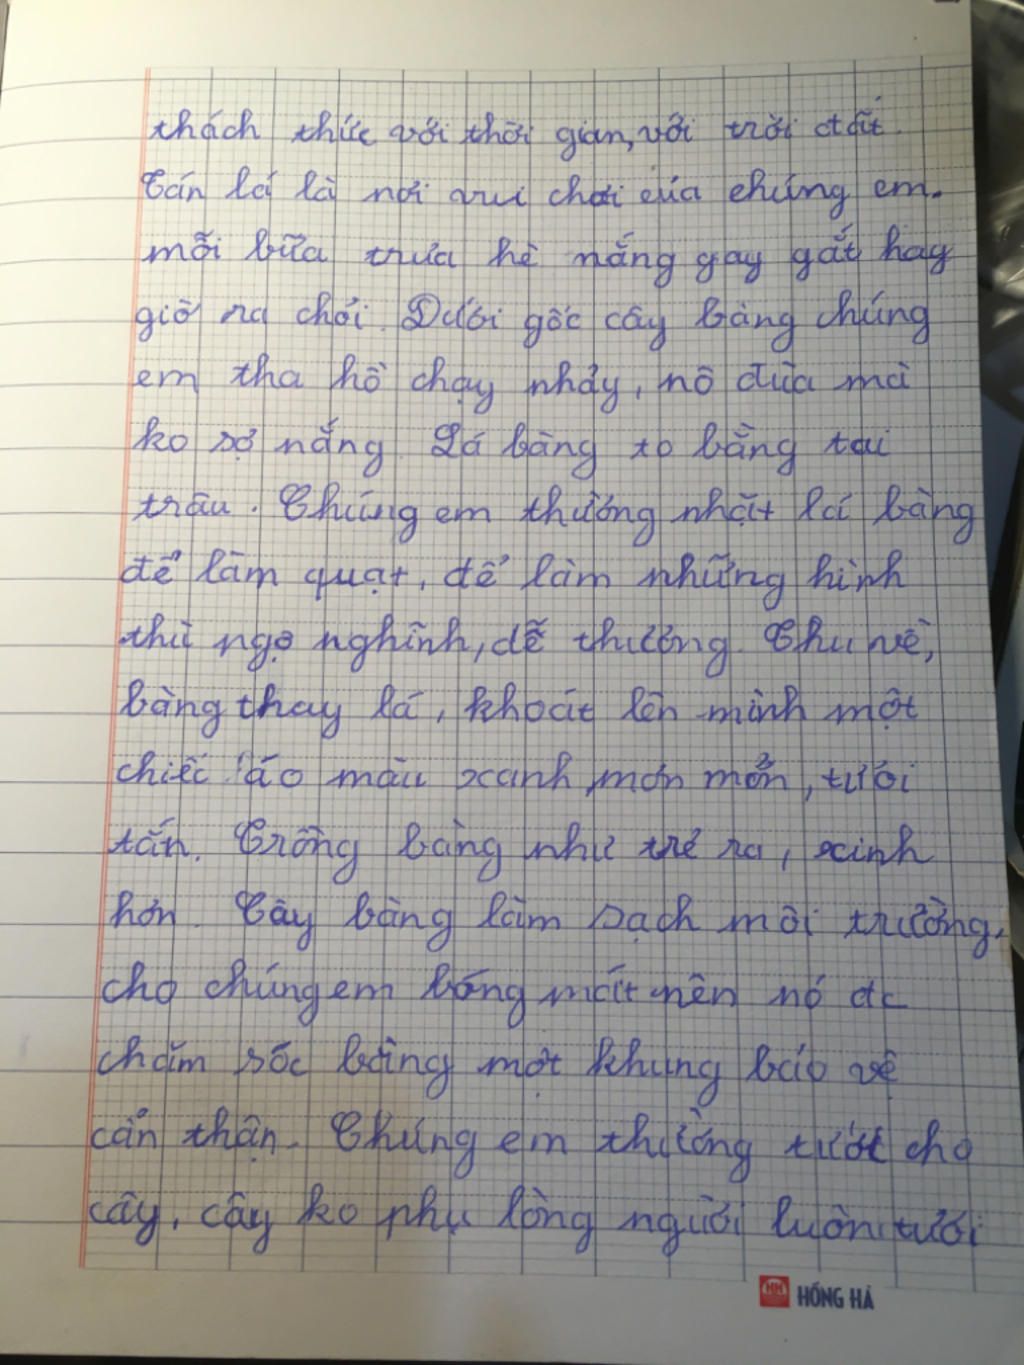 thách thức với thời gian, với trời đất.
Tán lá là nơi vui chơi của chúng em.
mỗi bữa trưa hè nắng gay gắt hay
giờ ra chơi. Dưới gốc cây bàng chúng
em tha hồ chạy nhảy, nô đùa mà
ko sợ nắng. Lá bàng to bằng tai
trâu. Chúng em thường nhặt lá bàng
để làm quạt, để làm những hình
thù ngộ nghĩnh, dễ thương. Thu về,
bàng thay lá, khoát lên mình một
chiếc áo màu xanh mơn mởn, tươi
tắn. Trông bàng như trẻ ra, xinh
hơn. Cây bàng làm sạch môi trường,
cho chúng em bóng mát nên nó đc
chăm sóc bằng một khung bảo vệ
cẩn thận. Chúng em thường tưới cho
cây, cây ko phụ lòng người luôn tươi
HỒNG HÀ